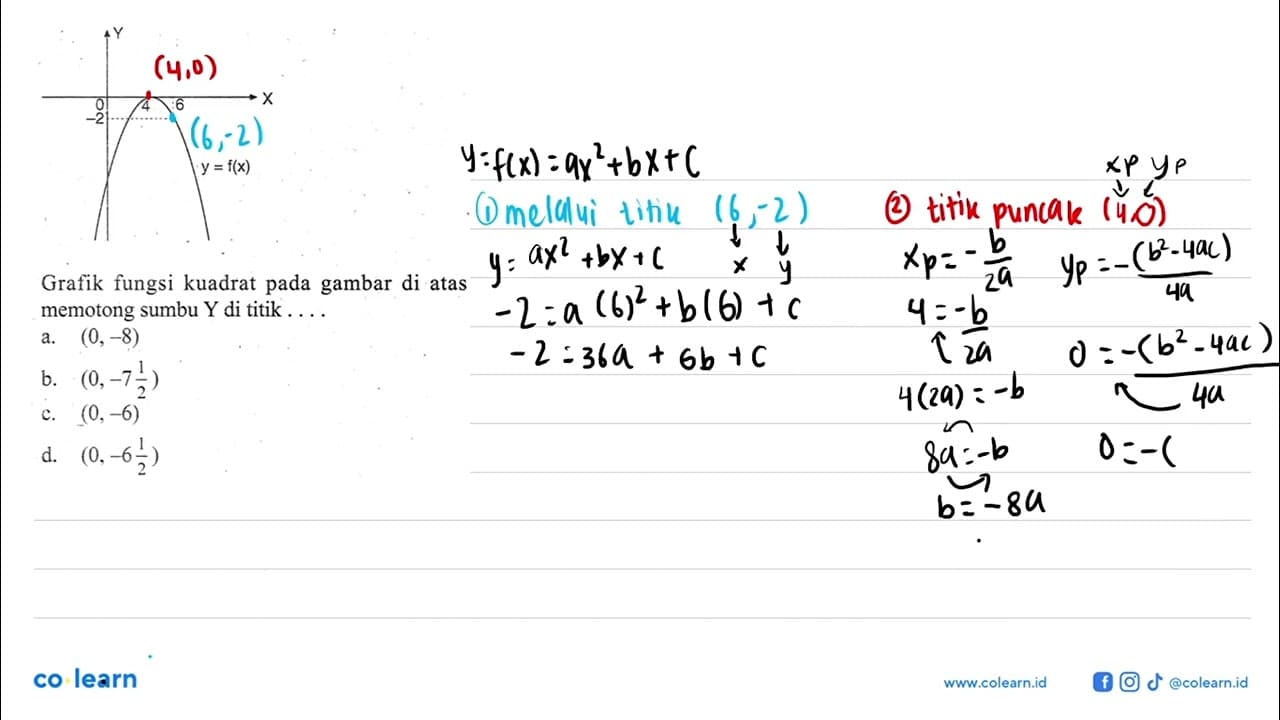 Y
(4,0)
0 4 6 X
-2
(6,-2)
y = f(x)
y = f(x) = ax² + bx + c
① melalui titik (6,-2)
x y
y = ax² + bx + c
-2 = a(6)² + b(6) + c
-2 = 36a + 6b + c
xp yp
② titik puncak (4,0)
xp = -b/2a
4 = -b/2a
4(2a) = -b
8a = -b
b = -8a
yp = -(b²-4ac)/4a
0 = -(b²-4ac)/4a
0 = -(
Grafik fungsi kuadrat pada gambar di atas
memotong sumbu Y di titik . . . .
a. (0, –8)
b. (0, –7 1/2)
c. (0, –6)
d. (0, –6 1/2)
co learn
www.colearn.id
@colearn.id